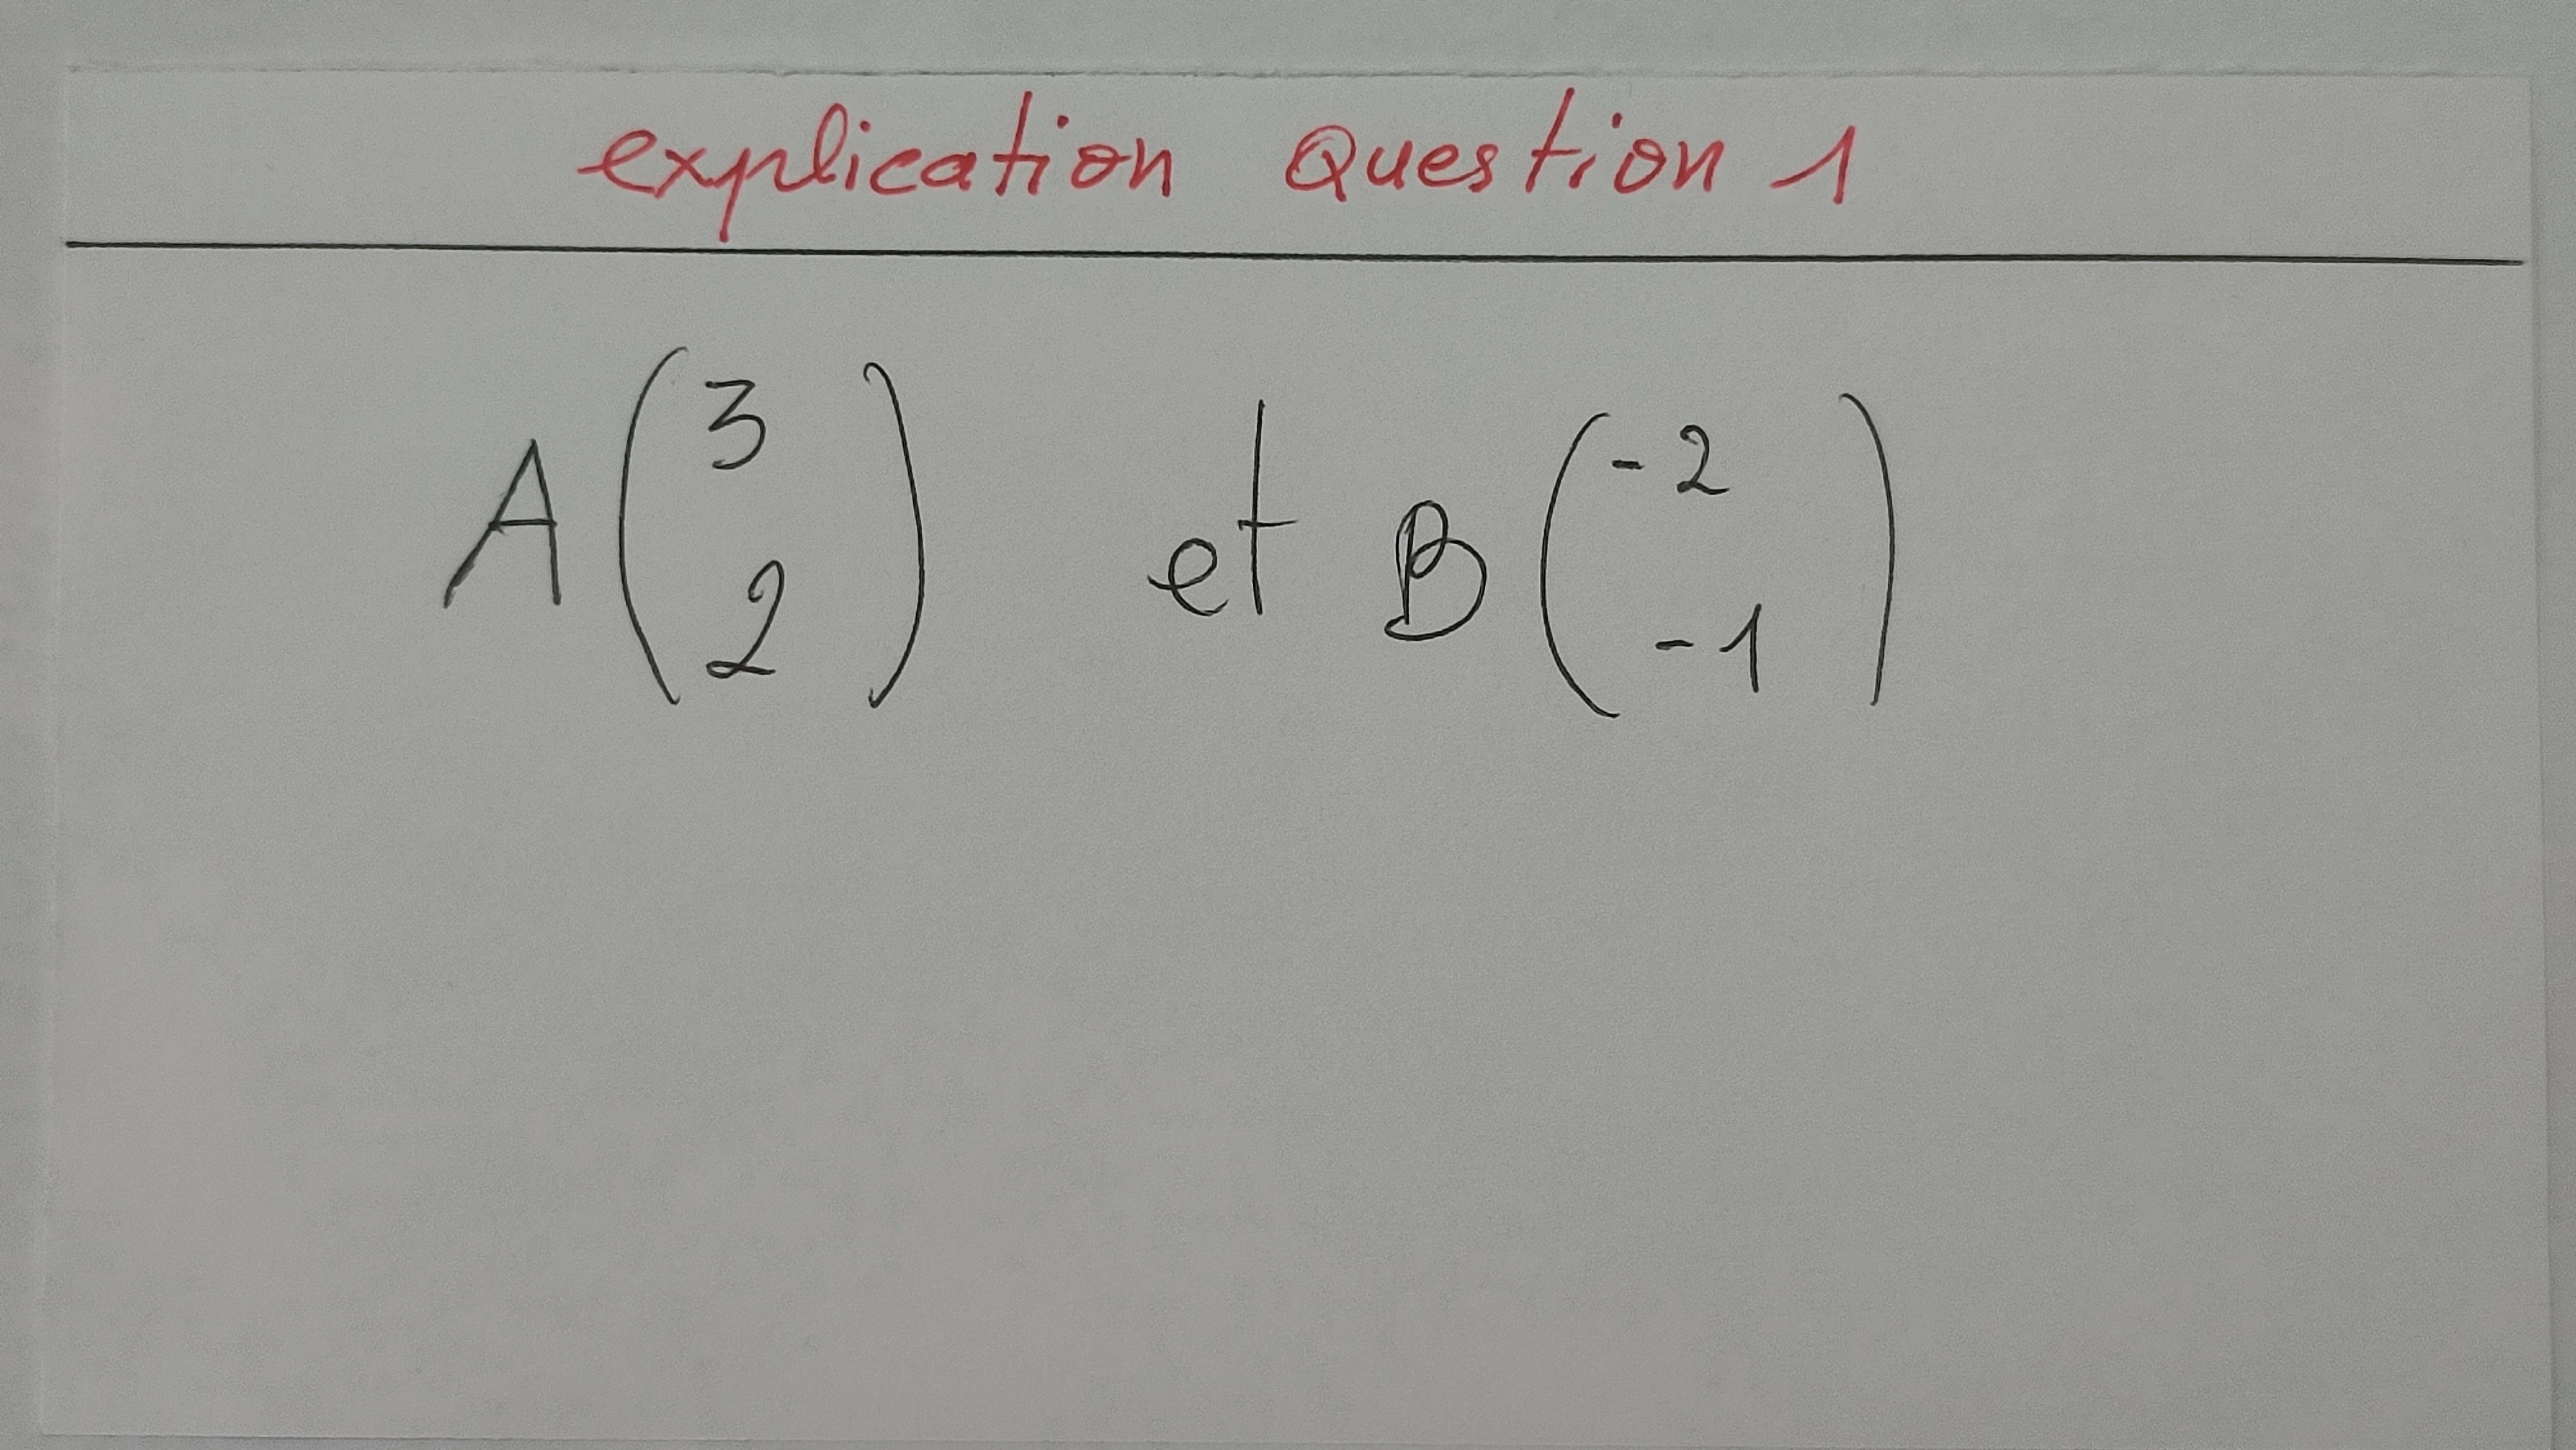 explication Question 1
A(3 2) et B(-2 -1)